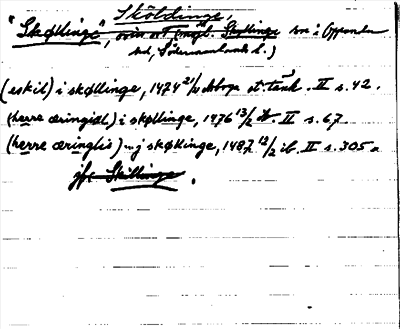 Sköldinge
"Skøllinge", (möjl. Skyllinge sn i Oppunda
hd, Södermanlands l.)
(eskil) i skøllinge, 1474 21/ Arboga st. tänk. II s. 42.
(herre æringisl) i skøllinge, 1476 13/2 ib. II s. 67
(herre æringlis) j skøllinge, 1487 12/2 ib. II s. 305
jfr Skillinge.